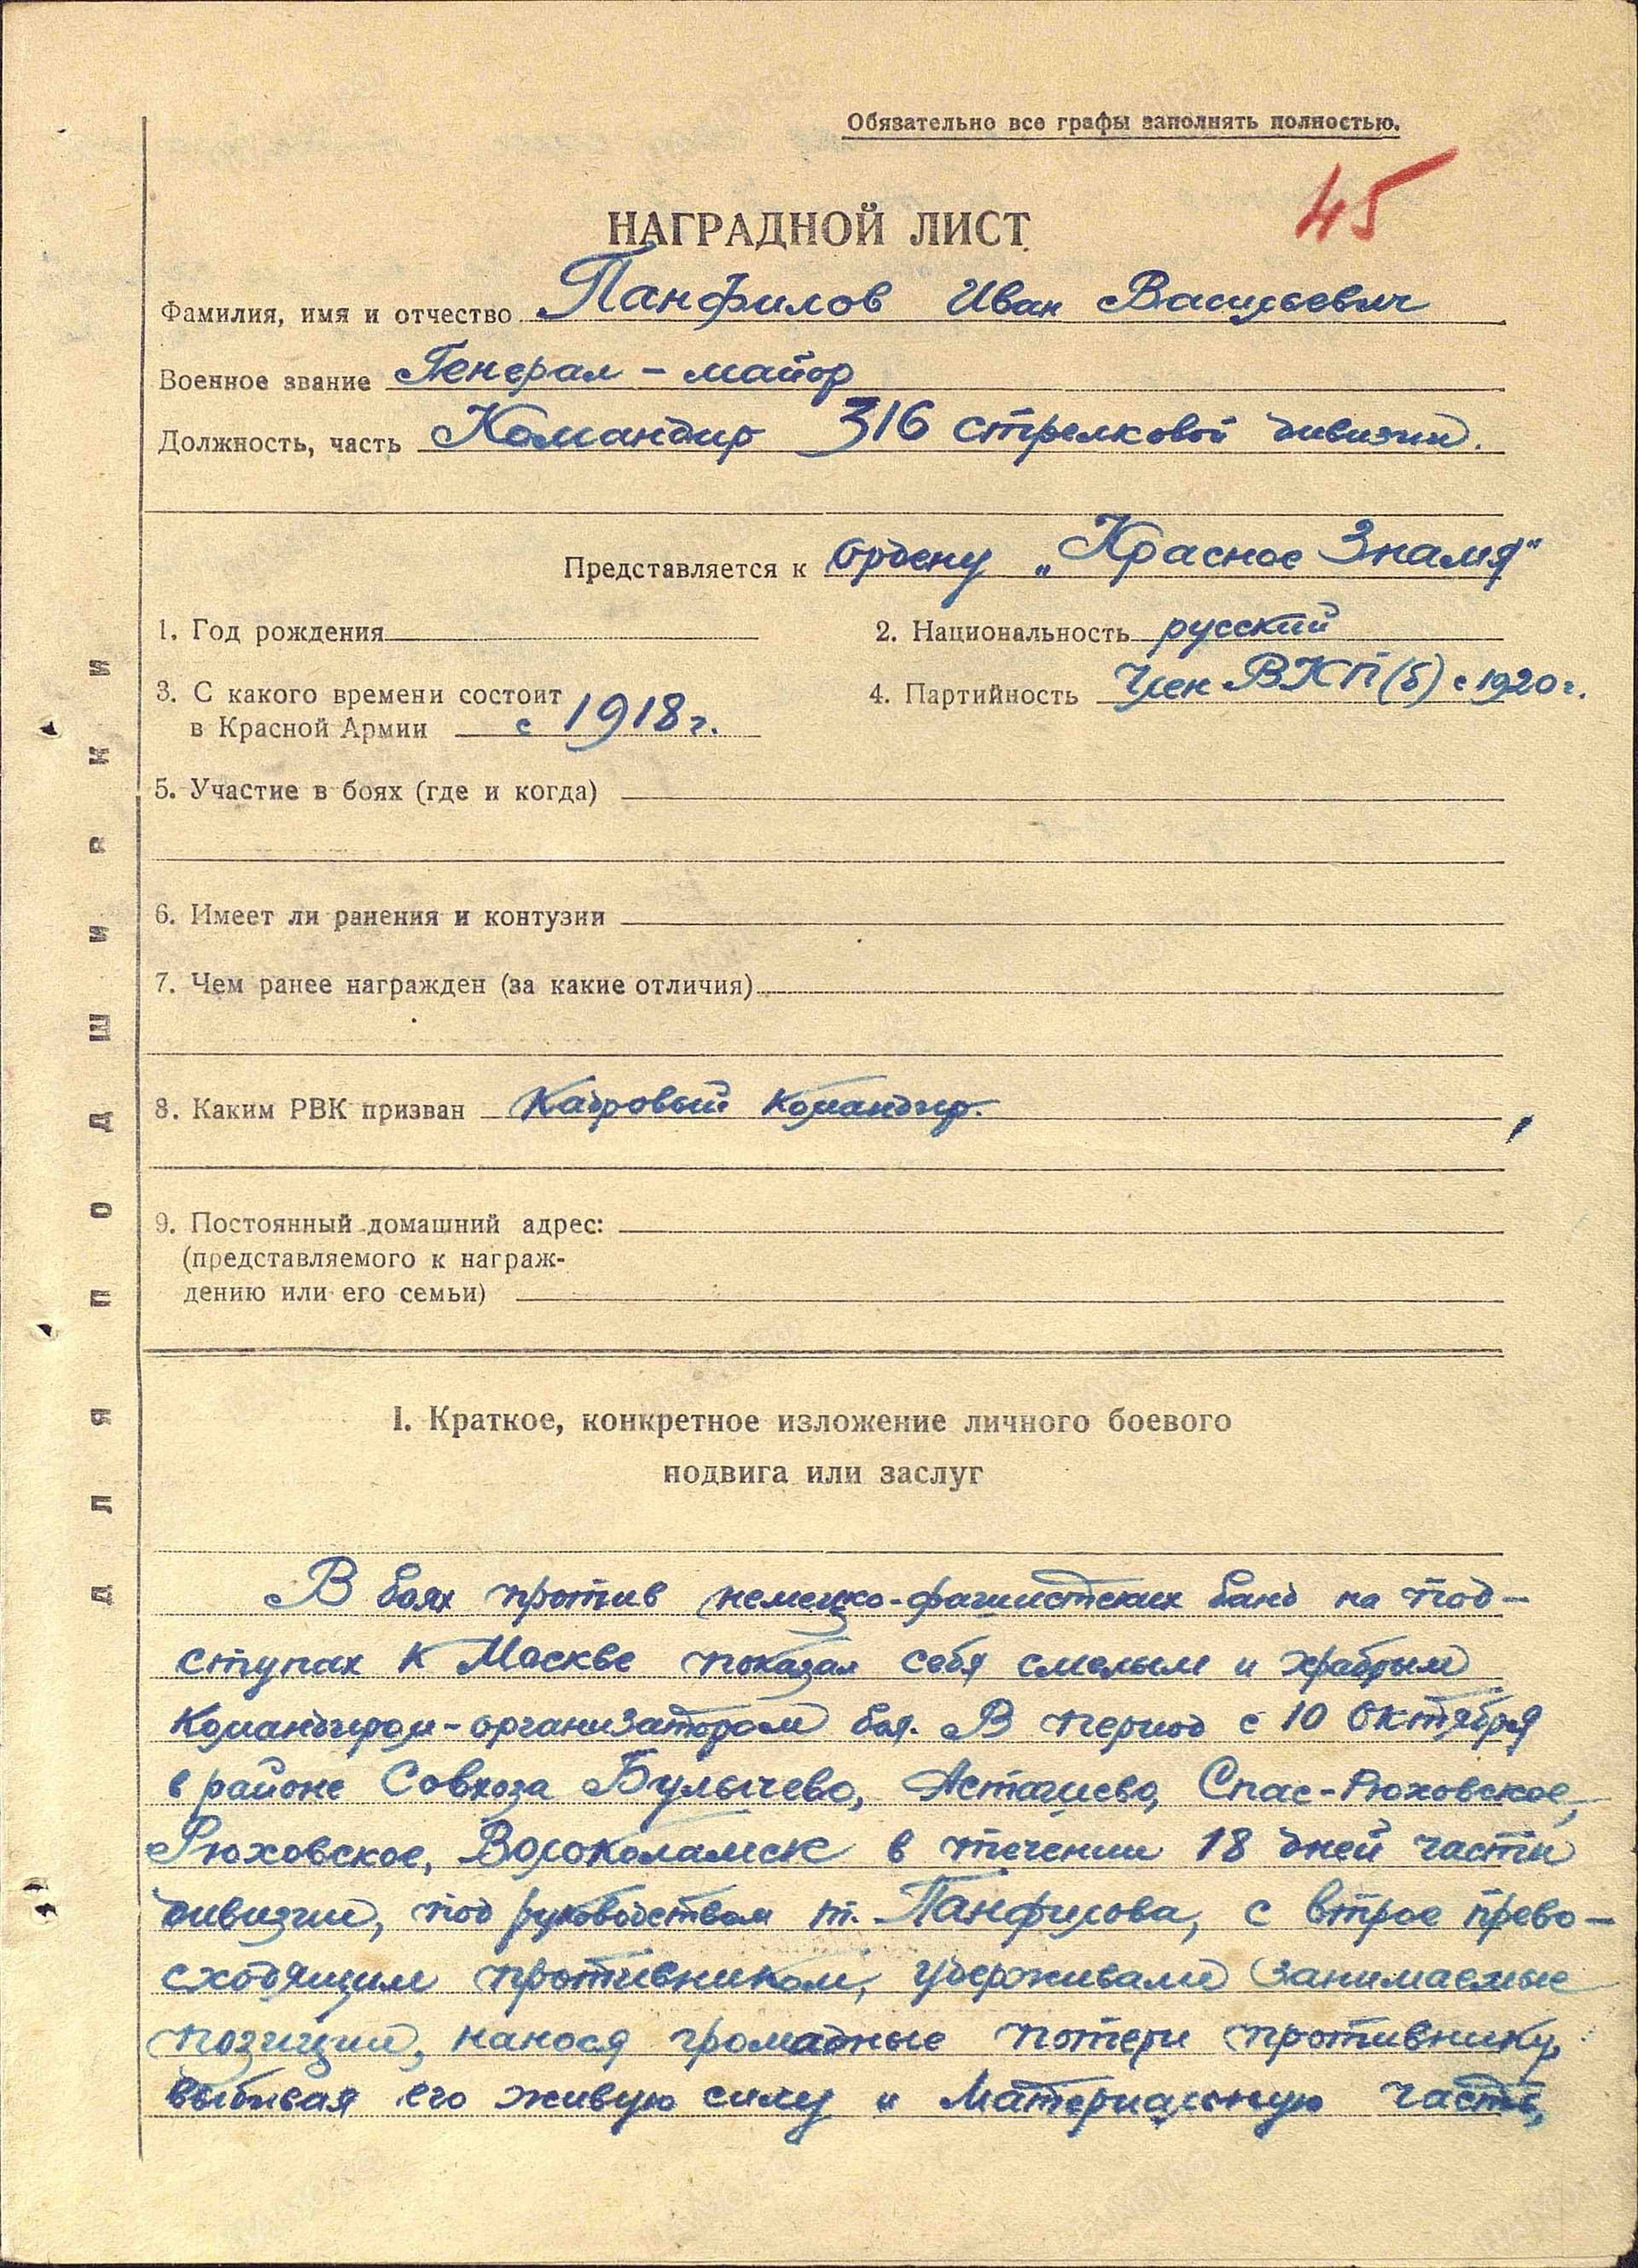 Обязательно все графы заполнять полностью.
45
НАГРАДНОЙ ЛИСТ
Фамилия, имя и отчество Панфилов Иван Васильевич
Военное звание Генерал - майор
Должность, часть Командир 316 стрелковой дивизии.
Представляется к ордену „Красное Знамя"
1. Год рождения
2. Национальность русский
3. С какого времени состоит
в Красной Армии с 1918 г.
4. Партийность Член ВКП(б) с 1920 г.
5. Участие в боях (где и когда)
6. Имеет ли ранения и контузии
7. Чем ранее награжден (за какие отличия)
8. Каким РВК призван Кадровый командир.
9. Постоянный домашний адрес:
(представляемого к награж-
дению или его семьи)
ДЛЯ ПОДШИВКИ
I. Краткое, конкретное изложение личного боевого
подвига или заслуг
В боях против немецко-фашистских банд на под-
ступах к Москве показал себя смелым и храбрым
командиром-организатором боя. В период с 10 октября
в районе Совхоза Булычево, Асташево, Спас-Рюховское,
Рюховское, Волоколамск в течении 18 дней части
дивизии, под руководством т. Панфилова, с втрое прево-
сходящим противником, удерживали занимаемые
позиции, нанося громадные потери противнику,
выбивая его живую силу и материальную часть,